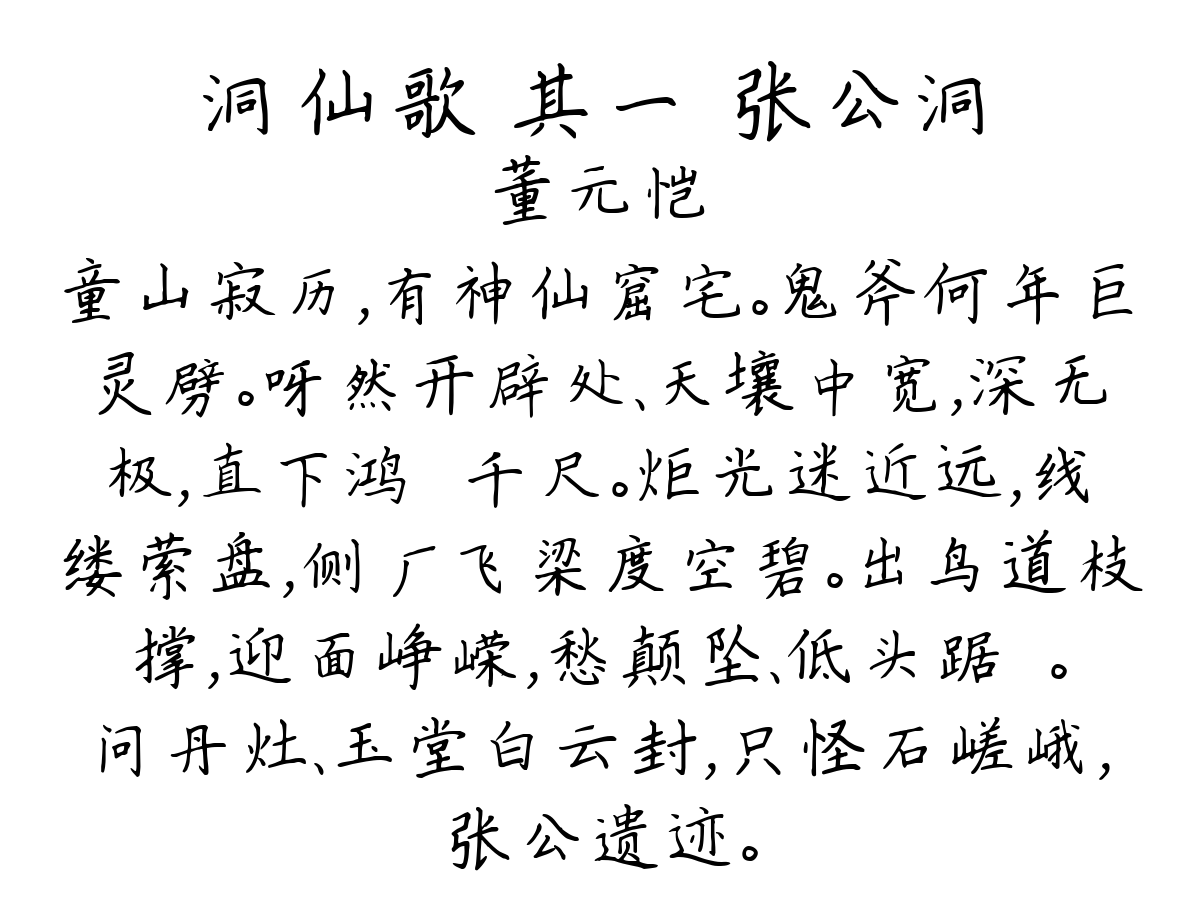 洞仙歌 其一 张公洞
董元恺
童山寂历,有神仙窟宅。鬼斧何年巨
灵劈。呀然开辟处、天壤中宽,深无
极,直下鸿 千尺。炬光迷近远,线
缕萦盘,侧厂飞梁度空碧。出鸟道枝
撑,迎面峥嵘,愁颠坠、低头踞 。
问丹灶、玉堂白云封,只怪石嵯峨,
张公遗迹。